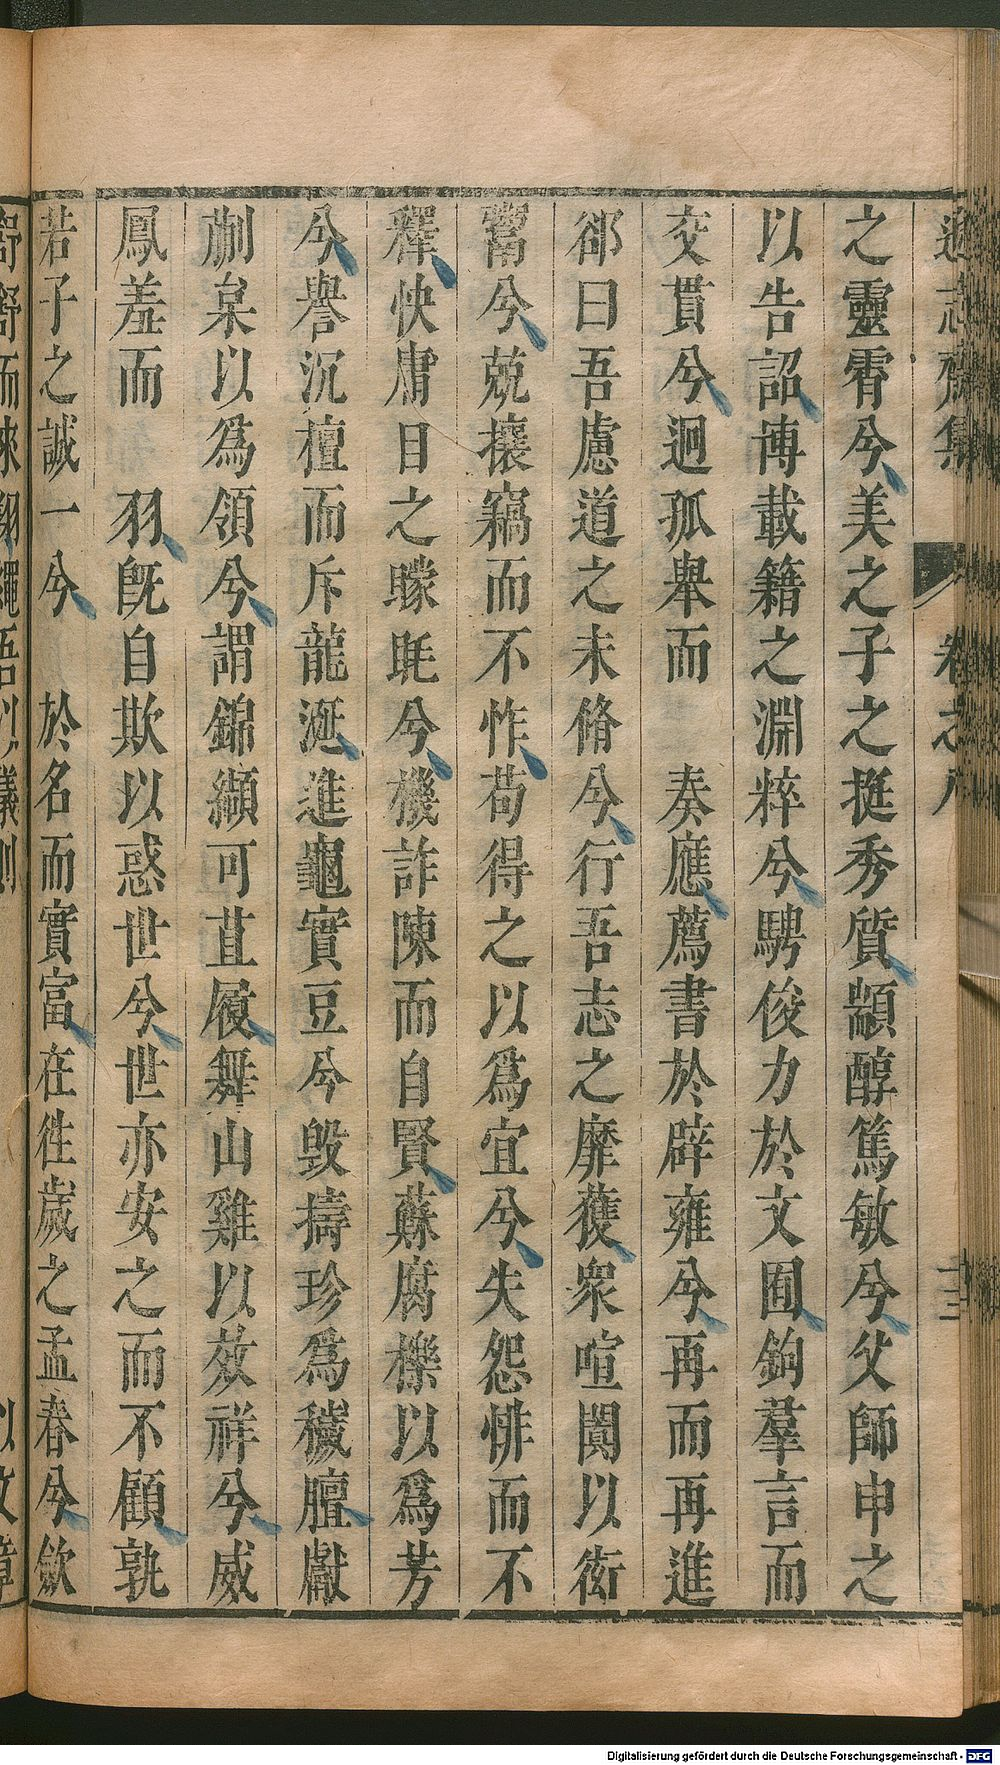 遜志齋集
卷之八
十三
之靈霄兮美之子之挺秀質顓醇篤敏兮父師申之
以告詔博載籍之淵粹兮騁俊力於文囿鉤羣言而
交貫兮迥孤舉而　奏應薦書於辟雍兮再而再進
郤曰吾慮道之未脩兮行吾志之靡獲衆喧闐以衒
鬻兮兢攘竊而不怍苟得之以爲宜兮失怨悱而不
釋怏庸目之矇眊兮機詐陳而自賢蘇腐櫟以爲芳
兮譽沉檀而斥龍涎進龜實豆兮毀擣珍爲穢膻獻
蒯枲以爲領兮謂錦纈可苴履舞山雞以效祥兮威
鳳羞而　羽旣自欺以惑世兮世亦安之而不顧孰
若子之誠一兮　於名而實富在徃歲之孟春兮歛
Digitalisierung gefördert durch die Deutsche Forschungsgemeinschaft - DFG